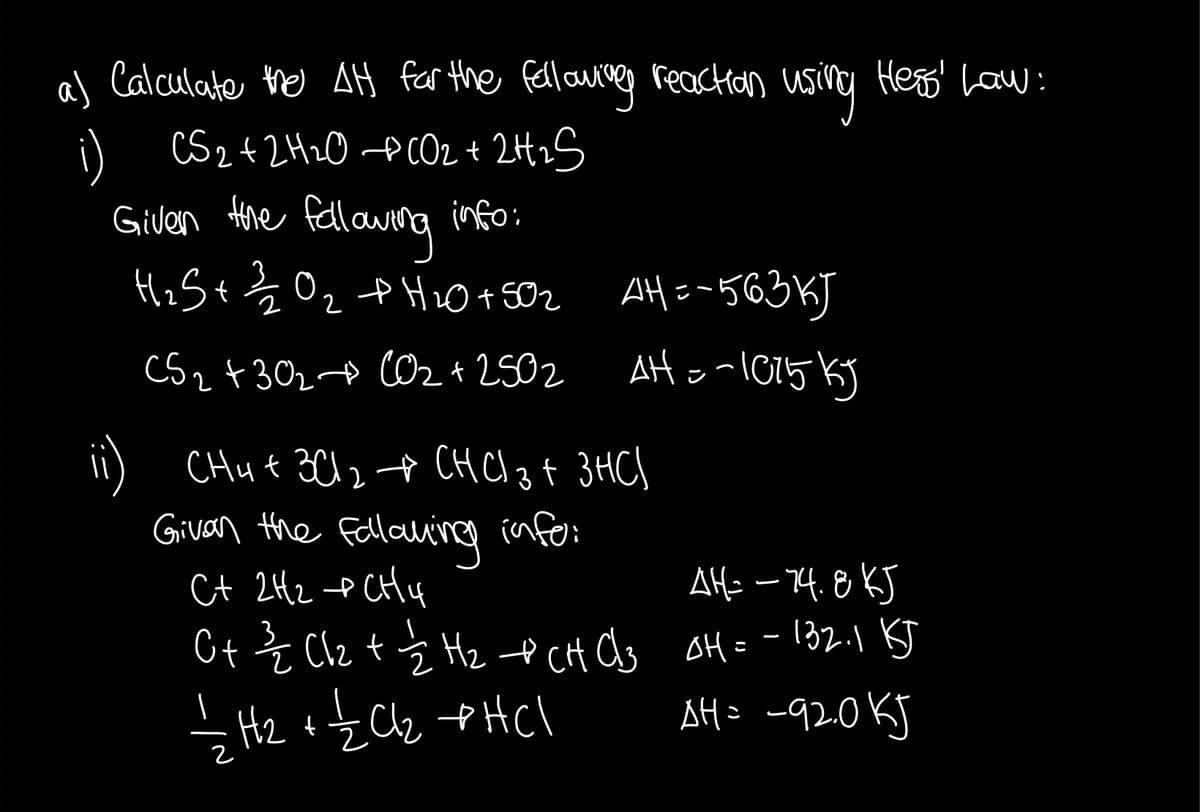 a) Calculate the ΔH for the following reaction using Hess' Law:
i) CS2 + 2H2O → CO2 + 2H2S
Given the following info:
H2S + 3/2 O2 → H2O + SO2 ΔH = -563 KJ
CS2 + 3O2 → CO2 + 2SO2 ΔH = -1075 KJ
ii) CH4 + 3Cl2 → CHCl3 + 3HCl
Given the following info:
C + 2H2 → CH4 ΔH = -74.8 KJ
C + 3/2 Cl2 + 1/2 H2 → CHCl3 ΔH = -132.1 KJ
1/2 H2 + 1/2 Cl2 → HCl ΔH = -92.0 KJ